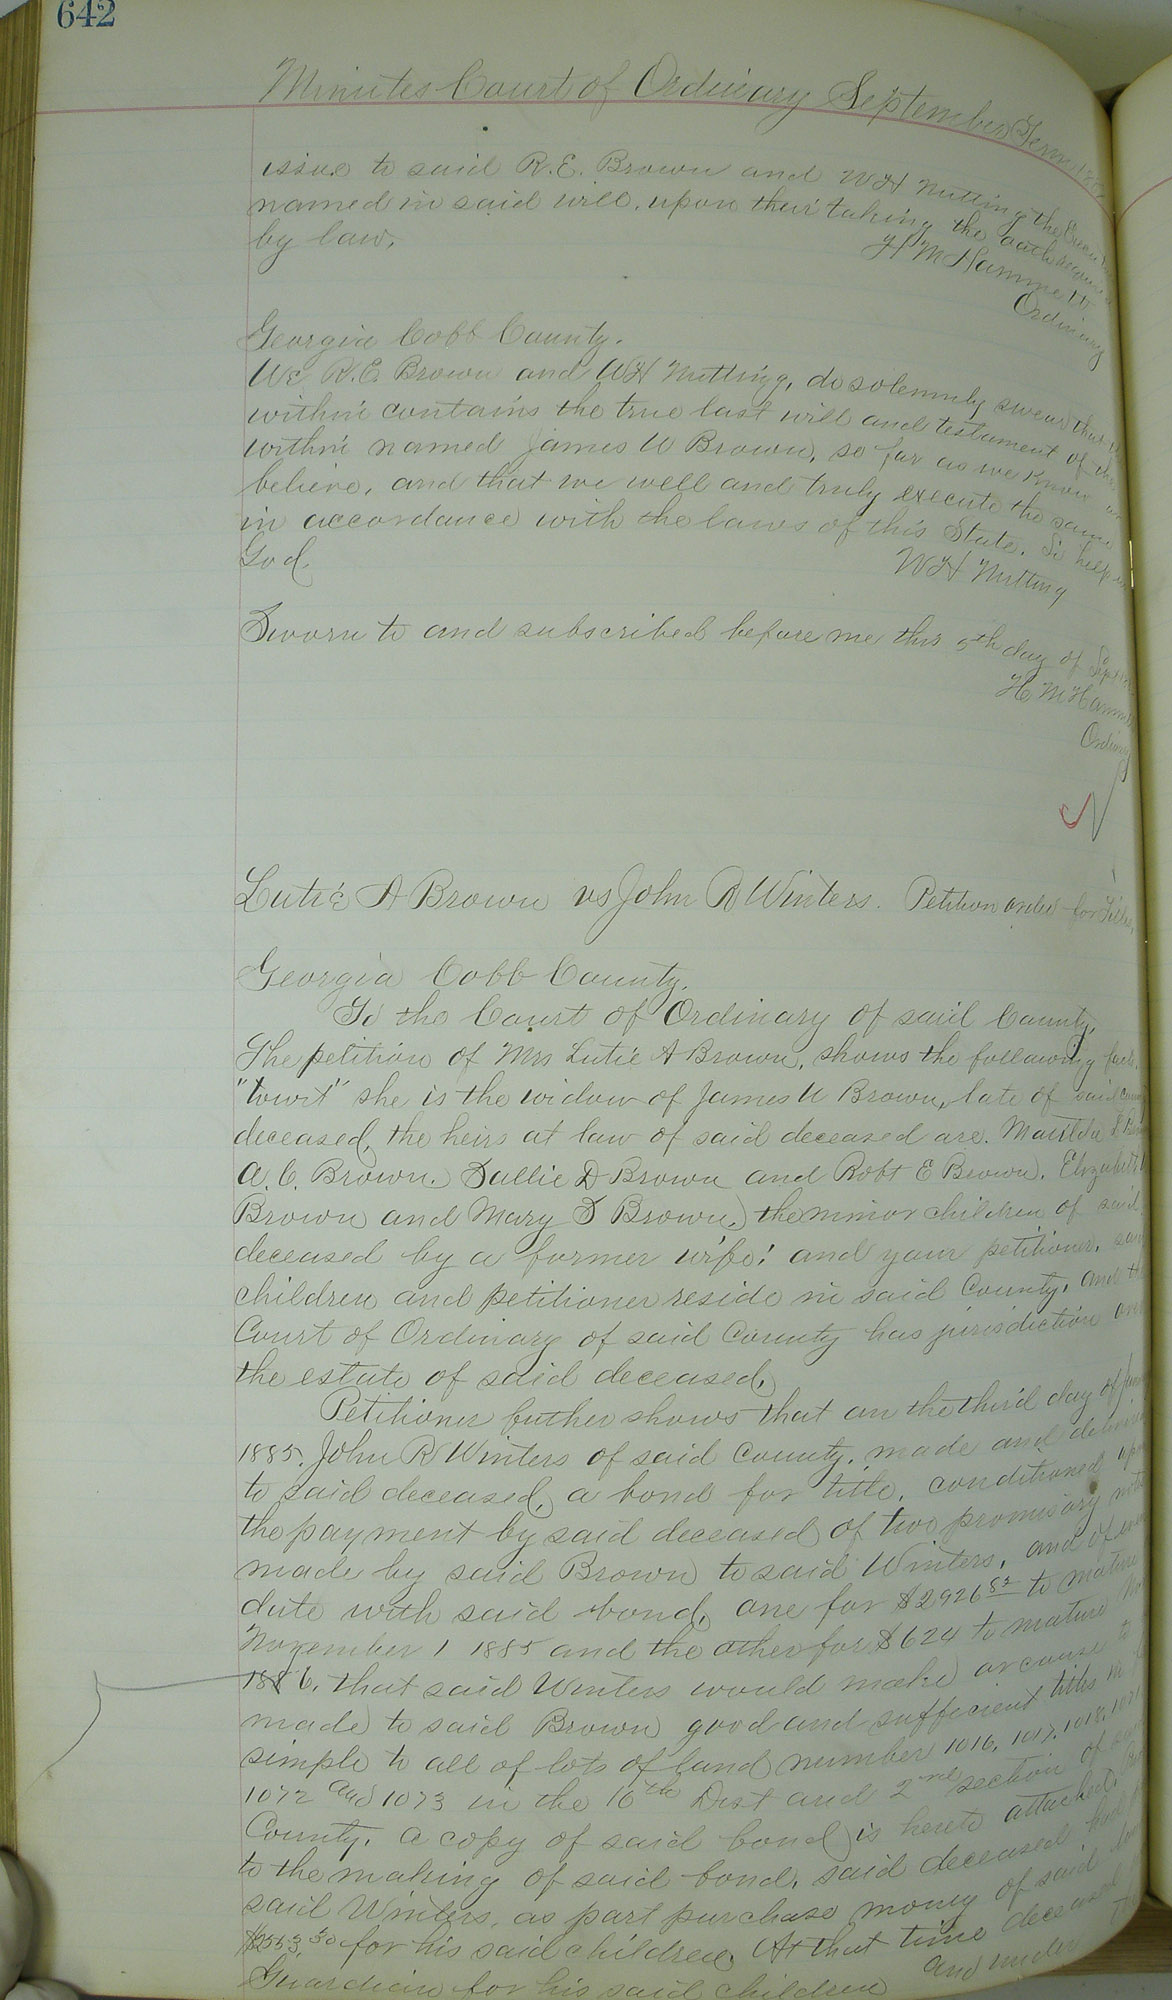 642
Minutes Court of Ordinary September Term
issue to said R.E. Brown and WH Nutting the
named in said will, upon their taking the oath
by law.
H M Hammett
Ordinary
Georgia Cobb County.
We R.E. Brown and WH Nutting, do solemnly swear that
within contains the true last will and testament of the
within named James W Brown, so far as we know or
believe, and that we well and truly execute the same
in accordance with the laws of this State. So help
God.
WH Nutting
Sworn to and subscribed before me this 5th day of
H M Hamme
Ordinary
Lutie A Brown vs John R Winters. Petition order for
Georgia Cobb County.
To the Court of Ordinary of said County.
The petition of Mrs Lutie A Brown, shows the following
"towit" she is the widow of James W Brown, late of said
deceased, the heirs at law of said deceased are. Matilda
A. C. Brown. Sallie D Brown and Robt E Brown. Elizabeth
Brown and Mary S Brown, the minor children of said
deceased by a former wife; and your petitioner,
children and petitioner reside in said County, and
Court of Ordinary of said County has jurisdiction
the estate of said deceased,
Petitioner futher shows that on the third day of
1885, John R Winters of said County, made and
to said deceased, a bond for title, conditioned
the payment by said deceased of two promisory
made by said Brown to said Winters, and of
date with said bond, one for $2926 82 to mature
November 1 1885 and the other for $624 to mature
1886, that said Winters would make or cause to
made to said Brown good and sufficient titles in
simple to all of lots of land number 1016, 1017, 1018,
1072 and 1073 in the 16th Dist and 2nd section of
County, a copy of said bond is hereto attached.
to the making of said bond, said deceased had
said Winters, as part purchase money of said
for his said children. At that time deceased
Guardian for his said children and under